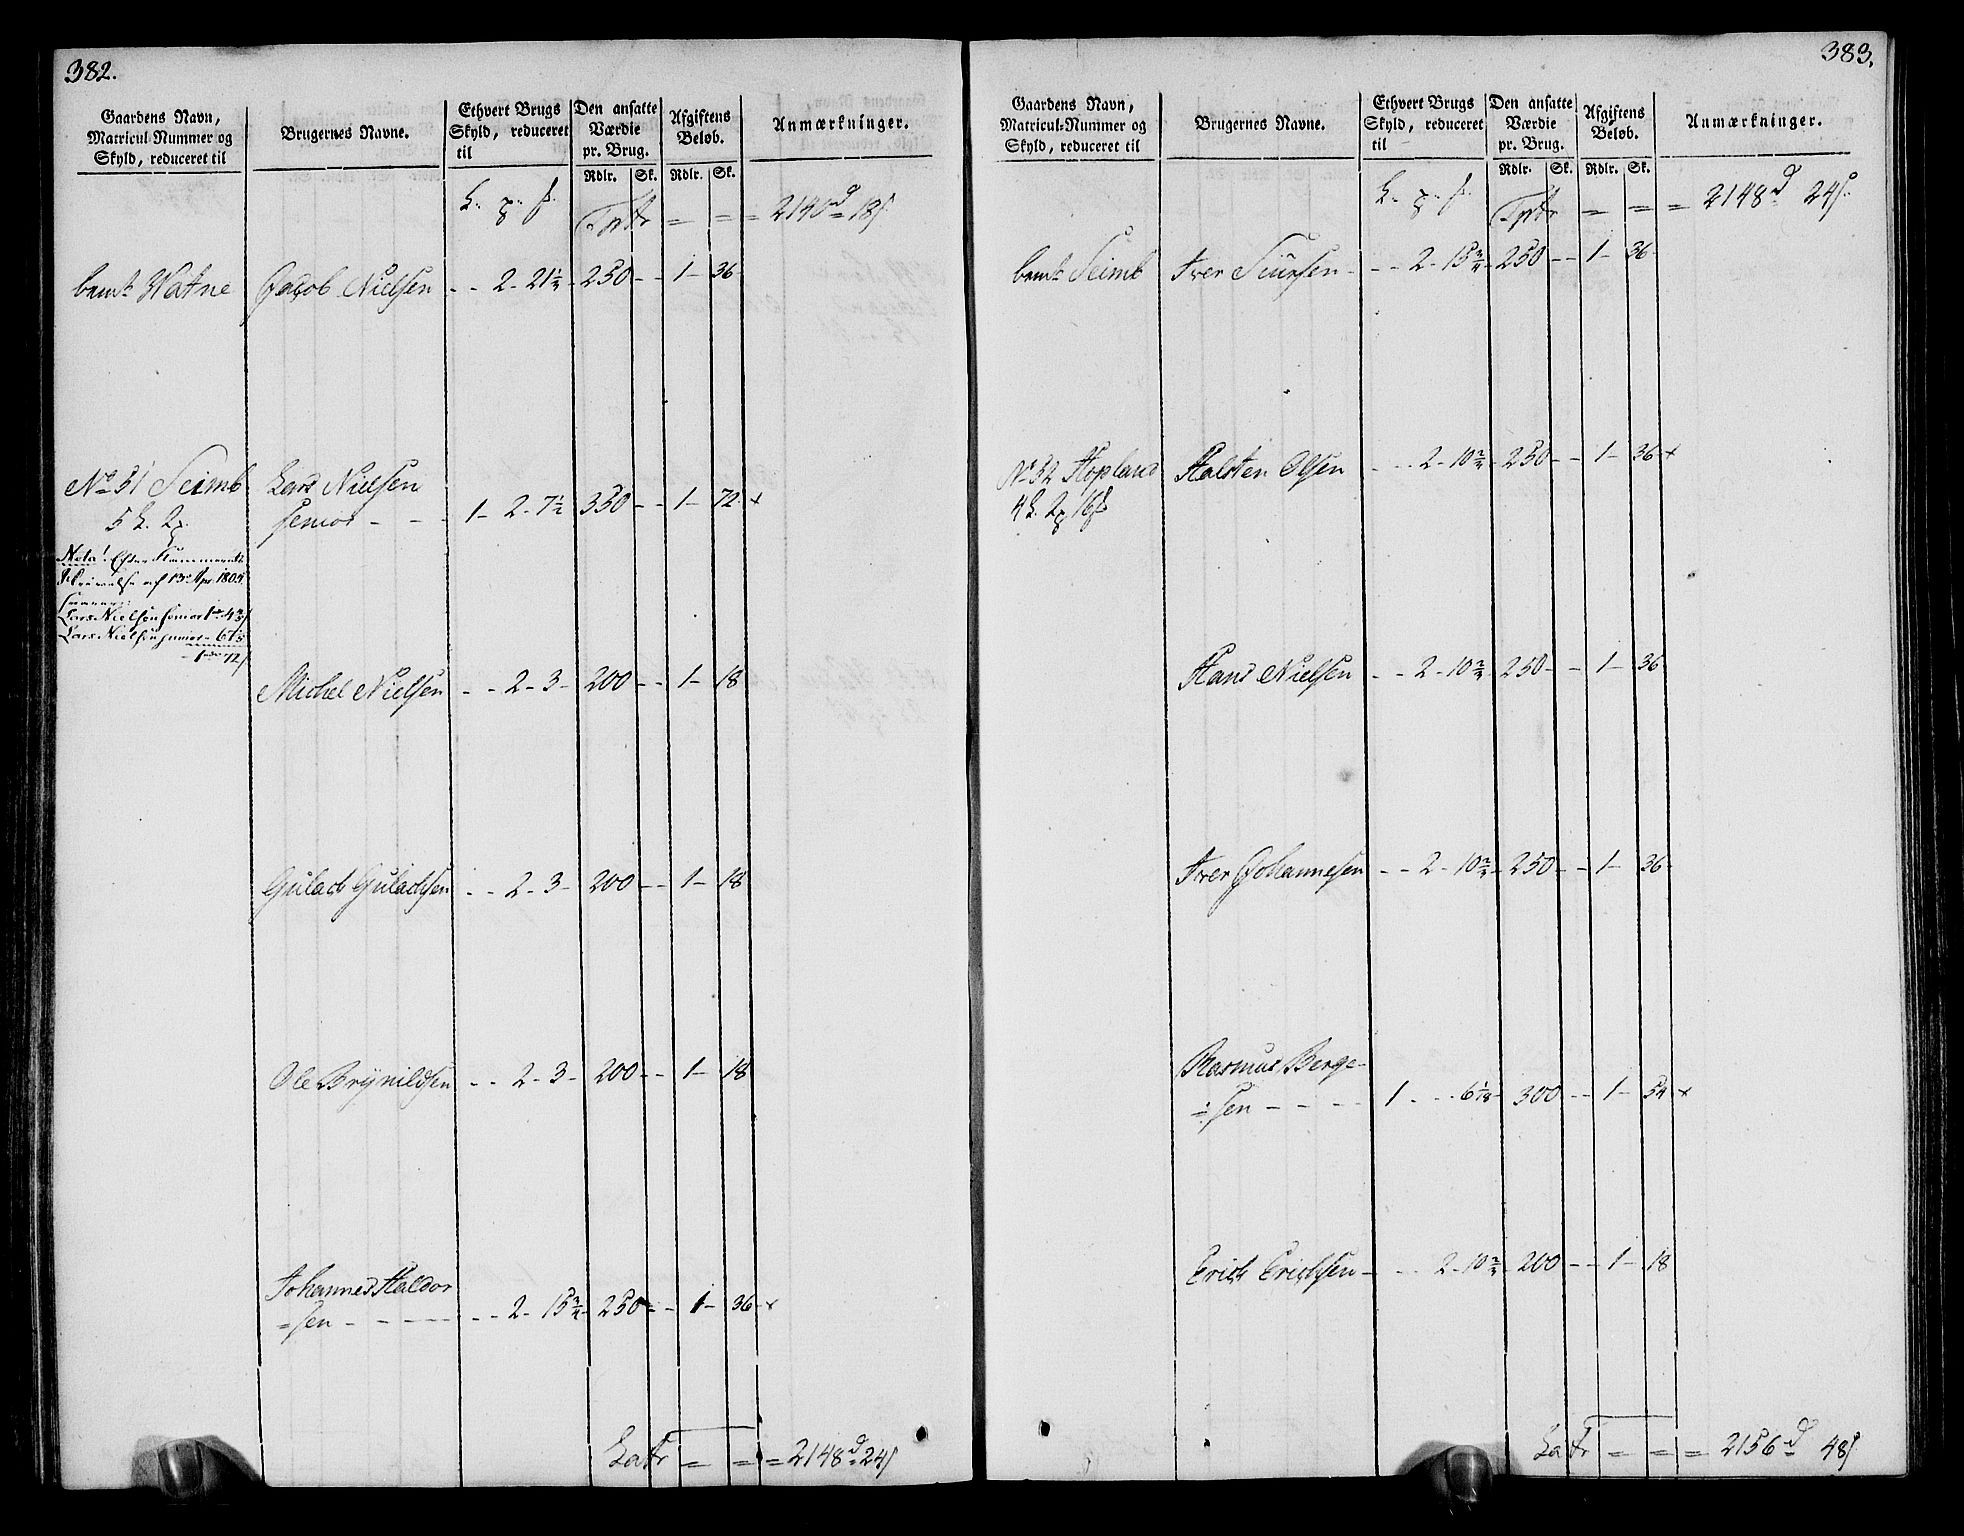 382.
Gaardens Navn, Matricul-Nummer og Skyld, reduceret til
Brugernes Navne.
Ethvert Brugs Skyld, reduceret til
Den ansatte Værdie pr. Brug.
Afgiftens Beløb.
Anmærkninger.
Rdlr. Sk. Rdlr. Sk.
Tptr = = = 2140 d 18 s.
bemt Watne Jacob Nielsen - - 2 - 21 1/2 - 250 - - 1 - 36
No 51 Seimb Lars Nielsen
5 L. 2
senior - - 1 - 2 - 7 1/2 350 - - 1 - 72 - x
Nota! Efter Kammerets
Skrivelse af 13de Apr. 1805.
svarer:
Lars Nielsen senior 1
Lars Nielsen junior - 67
Michel Nielsen - - 2 - 3 - 200 - - 1 - 18
Gulach Gulachsen - - 2 - 3 - 200 - - 1 - 18
Ole Brynildsen - - 2 - 3 - 200 - - 1 - 18
Johannes Haldor
=sen - - - - 2 - 15 3/4 - 250 - - 1 - 36 - x
Latr = = = 2148 d 24 s
383.
Gaardens Navn, Matricul-Nummer og Skyld, reduceret til
Brugernes Navne.
Ethvert Brugs Skyld, reduceret til
Den ansatte Værdie pr. Brug.
Afgiftens Beløb.
Anmærkninger.
Rdlr. Sk. Rdlr. Sk.
Tptr = = = 2148 d 24 s.
bemt Seimb Iver Siursen - - - 2 - 15 3/4 - 250 - - 1 - 36
No 52 Hopland Halsten Olsen - - - 2 - 10 2/4 - 250 - - 1 - 36 x
4 L. 2 16
Hans Nielsen - - 2 - 10 2/4 - 250 - - 1 - 36
Iver Johannesen - - 2 - 10 2/4 - 250 - - 1 - 36
Rasmus Berge-
=sen - - - - 1 - - - 6 - 300 - - 1 - 54 x
Erich Erichsen - - - 2 - 10 2/4 - 200 - - 1 - 18
Latr = = = 2156 d 48 s